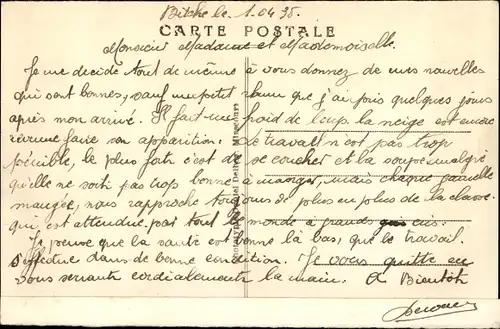 Bitche le 1.04.35.
CARTE POSTALE
Monsieur Madame et Mademoiselle.
Je me décide tout de même à vous donnez de mes nouvelles
qui sont bonnes, sauf un petit rhume que j'ai pris quelques jours
après mon arrivé. Il fait un froid de loup la neige est encore
revenue faire son apparition. Le travail n'est pas trop
pénible, le plus forte c'est de se coucher et la soupe malgré
qu'elle ne soit pas trop bonne à manger, mais chaque gamelle
mangée, nous rapproche tous de plus en plus de la classe.
qui est attendue par tout le monde à grands cris.
Je pense que la santé est bonne là bas, que le travail
s'effectue dans de bonne condition. Je vous quitte en
vous serrant cordialement la main. A Bientôt